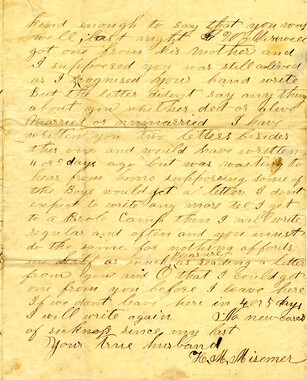 kind enough to say that you was
well, last night H M Misemer
got one from his mother and
I supposed you was still alive
as I recognised your hand write
But the letter didnt say any thing
about you whether ded or alive
married or unmarried I have
written you two letters besides
this one and would have written
4 or 5 days ago but was waiting to
hear from home supposing some of
the Boys would get a letter I dont
expect to write any more till I get
to a Camp then I will write
regular and often and you must
do the same for nothing affords
me half as much pleasure as reading a letter
from you and O that I could get
one from you before I leave here
If we dont leave here in 4 or 5 days
I will write again No new cases
of sickness since my last
Your true husband
H. M. Misemer